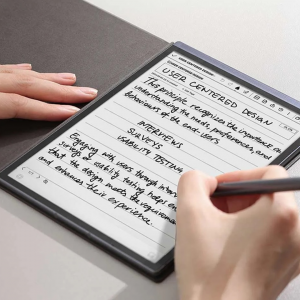 USER CENTERED DESIGN
This principle recognizes the importance of
understanding the needs, preferences, and
behaviours of the end users.
INTERVIEWS
SURVEYS
USABILITY TESTING
Engaging with users through inter
surveys & usability testing helps en
that the design meets the requiremen
and enhances their experience.